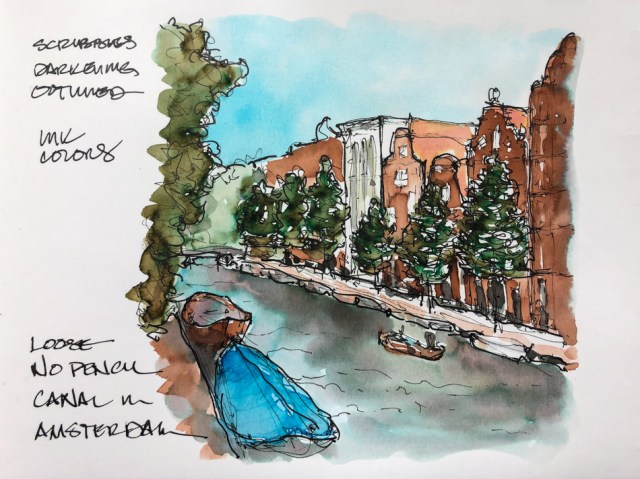 DARKENING
INK
COLORS
LOOSE
NO PENCIL
CANAL IN
AMSTERDAM